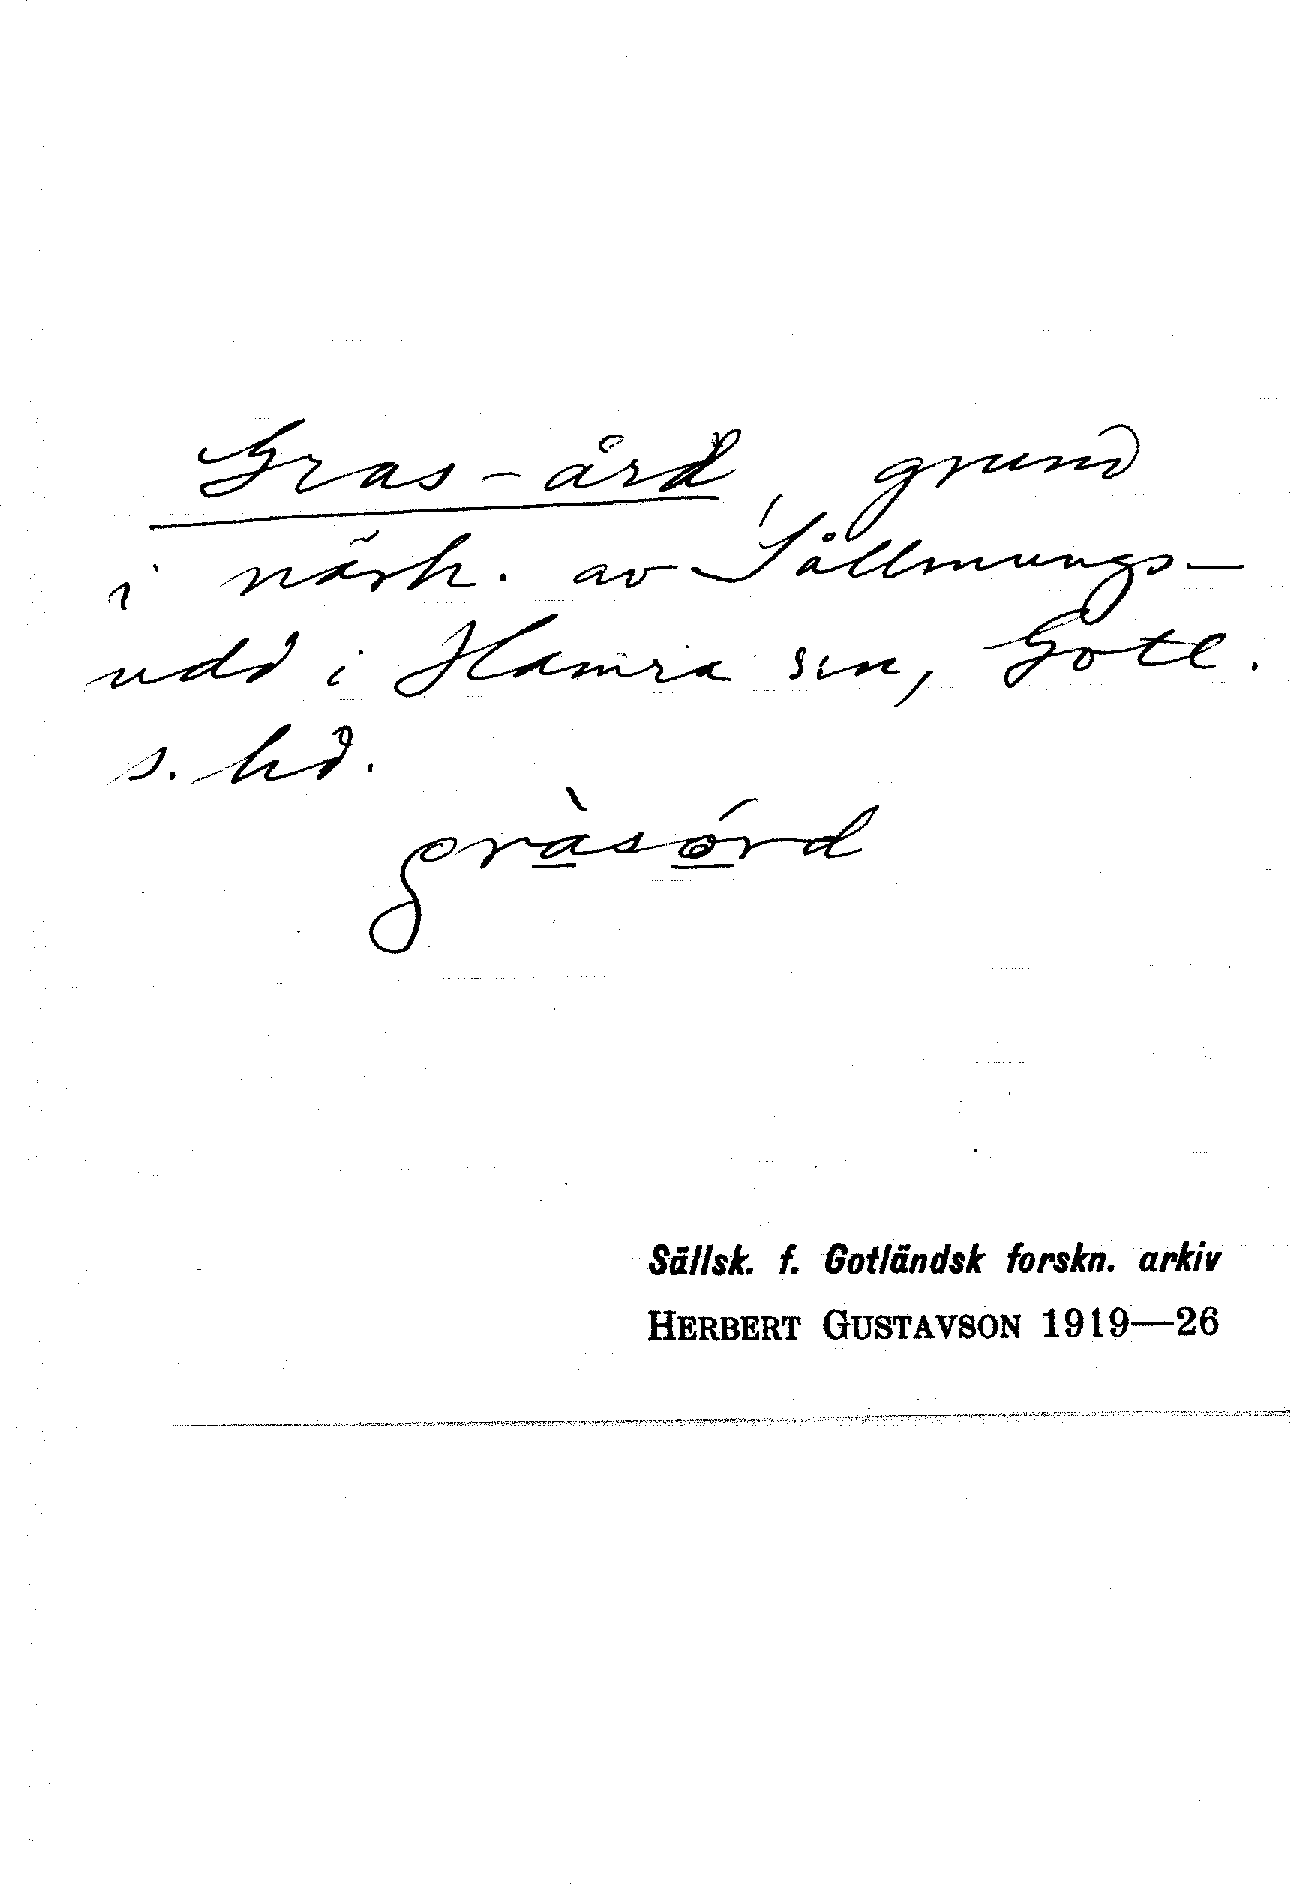 Gras-ård, grund
i närh. av Sållmungs-
udd i Hamra sn, Gotl.
s. hd.
gràsórd
Sällsk. f. Gotländsk forskn. arkiv
HERBERT GUSTAVSON 1919—26